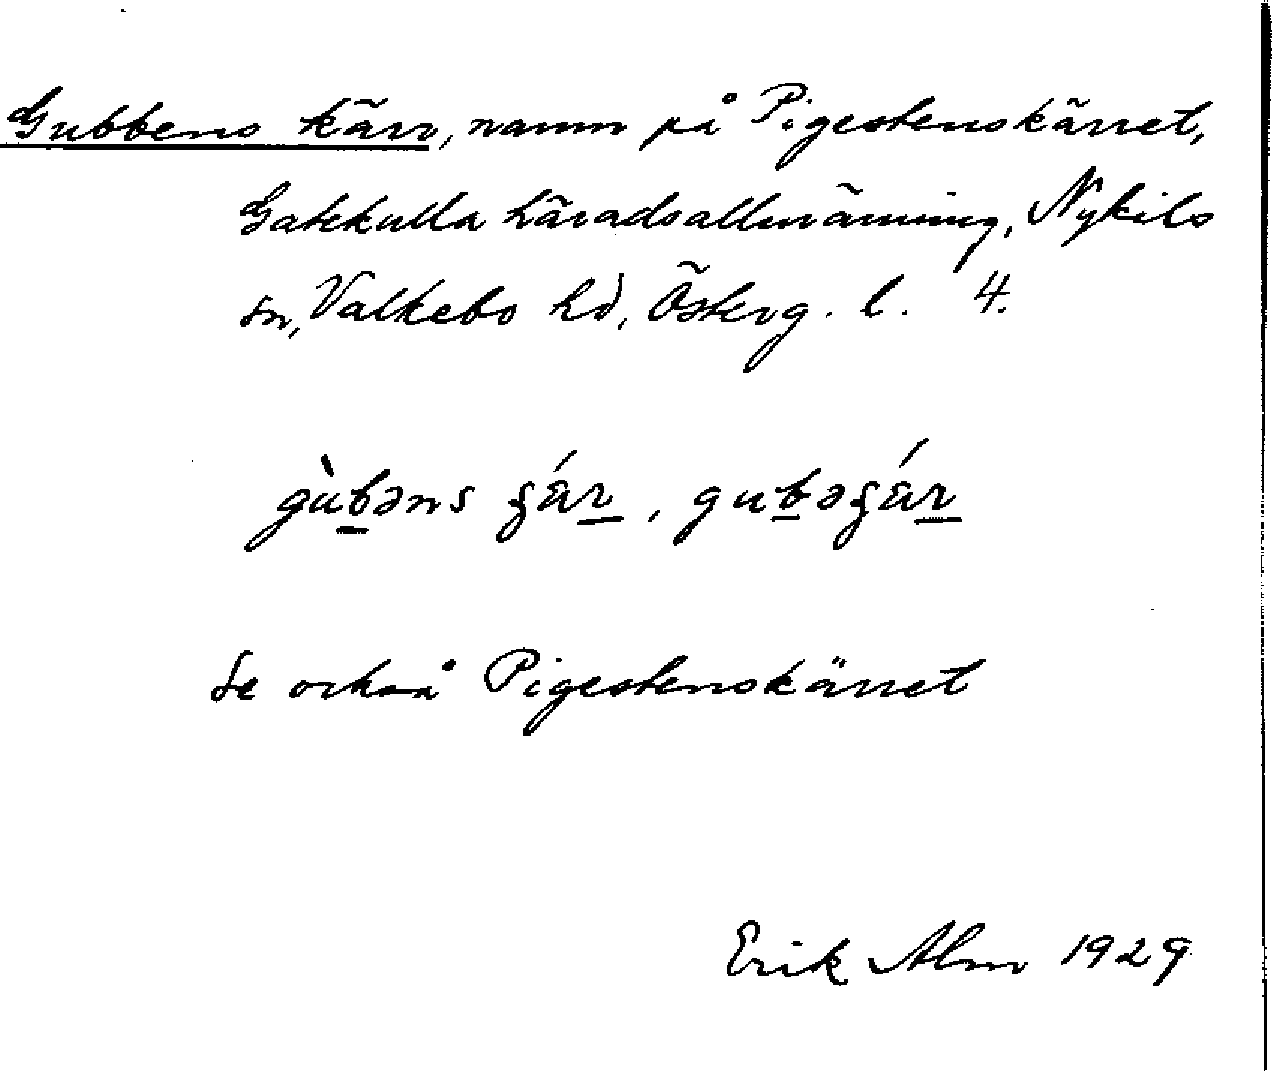 Gubbens kärr, namn på Pigestenskärret,
Gatekulla häradsallmänning, Nykils
sn, Valkebo hd, Österg. l. 4.
Se också Pigestenskärret
Erik Alm 1929